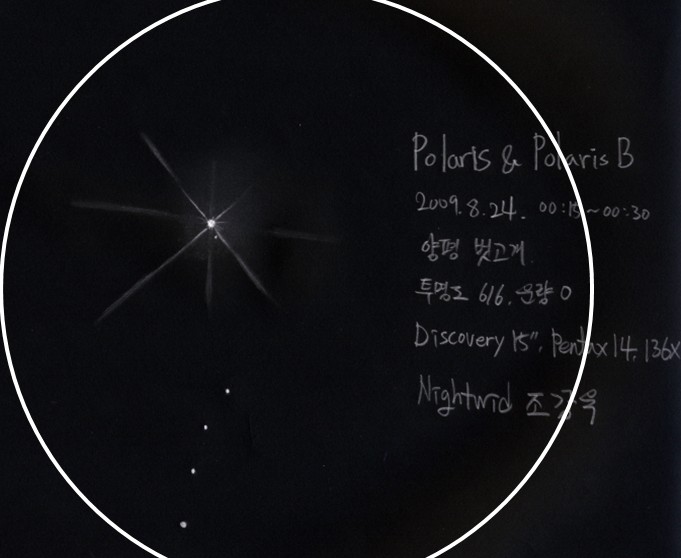 Polaris & Polaris B
2009.8.24. 00:15~00:30
양평 벗고개
투명도 6/6, 운량 0
Discovery 15", Pentax 14, 136x
Nightwid 조강욱